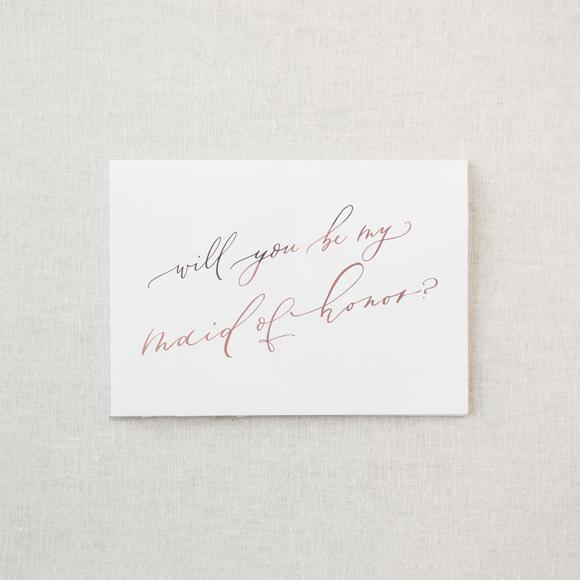 will you be my
maid of honor?